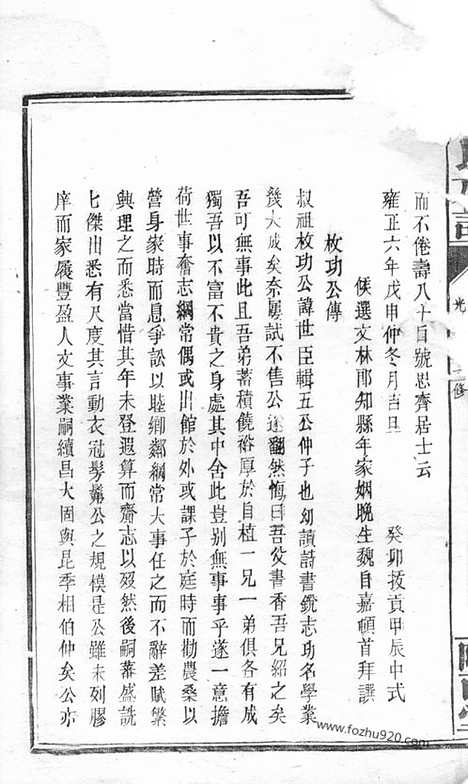 而不倦壽八十自號思齊居士云
雍正六年戊申仲冬月吉旦　癸卯拔貢甲辰中式
候選文林郎知縣年家姻晚生魏自嘉頓首拜譔
枚功公傳
叔祖枚功公諱世臣輯五公仲子也幼讀詩書銳志功名學業
幾大成矣奈屢試不售公遂翻然悔曰吾父書香吾兄紹之矣
吾可無事此且吾弟蓄積饒裕厚於自植一兄一弟俱各有成
獨吾以不富不貴之身處其中舍此豈别無事事乎遂一意擔
荷世事奮志綱常偶或出館於外或課子於庭時而勸農桑以
營身家時而息爭訟以睦鄉鄰綱常大事任之而不辭差賦繁
興理之而悉當惜其年未登遐算而齎志以歿然後嗣蕃盛詵
七傑出悉有尺度其言動衣冠髣髴公之規模是公雖未列膠
庠而家履豐盈人文事業嗣續昌大固與昆季相伯仲矣公亦
光
修
www.fozhu920.com